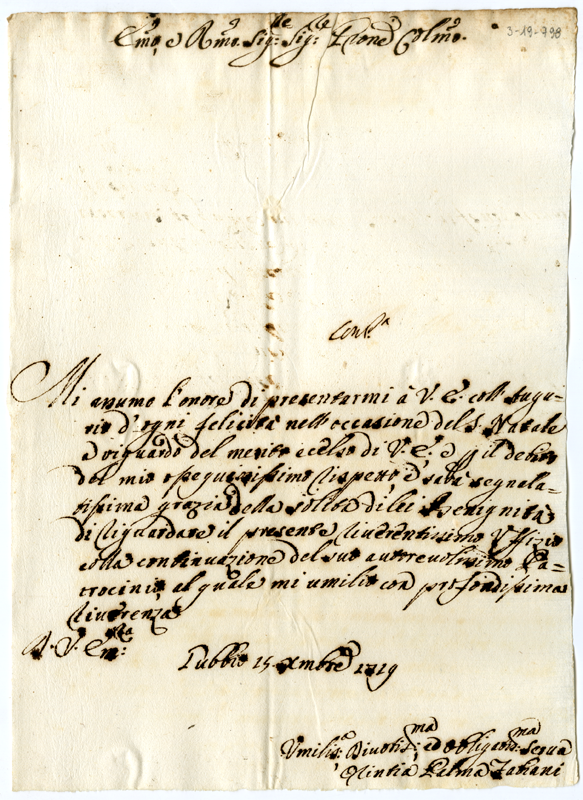 3-19-998
Emo, e Rmo. Sigr: Sigr: Prone Colmo.
Mi assumo l'onore di presentarmi à V. E. coll' augu=
rio d'ogni felicità nell'occasione del S. Natale
à riguardo del merito eccelso di V. E. e p il debito
del mio ossequiosissimo rispetto, e sarà segnala=
tissima grazia della solita di lei Benignità
di riguardare il presente riverentissimo Uffizio
colla continuazione del suo autorevolissimo Pa=
trocinio al quale mi umilio con profondissima
riverenza
D. V. Emza:
Gubbio 15. Xmbre 1719
Umilisa: Divotisma: ed obligama: Serva
Palma